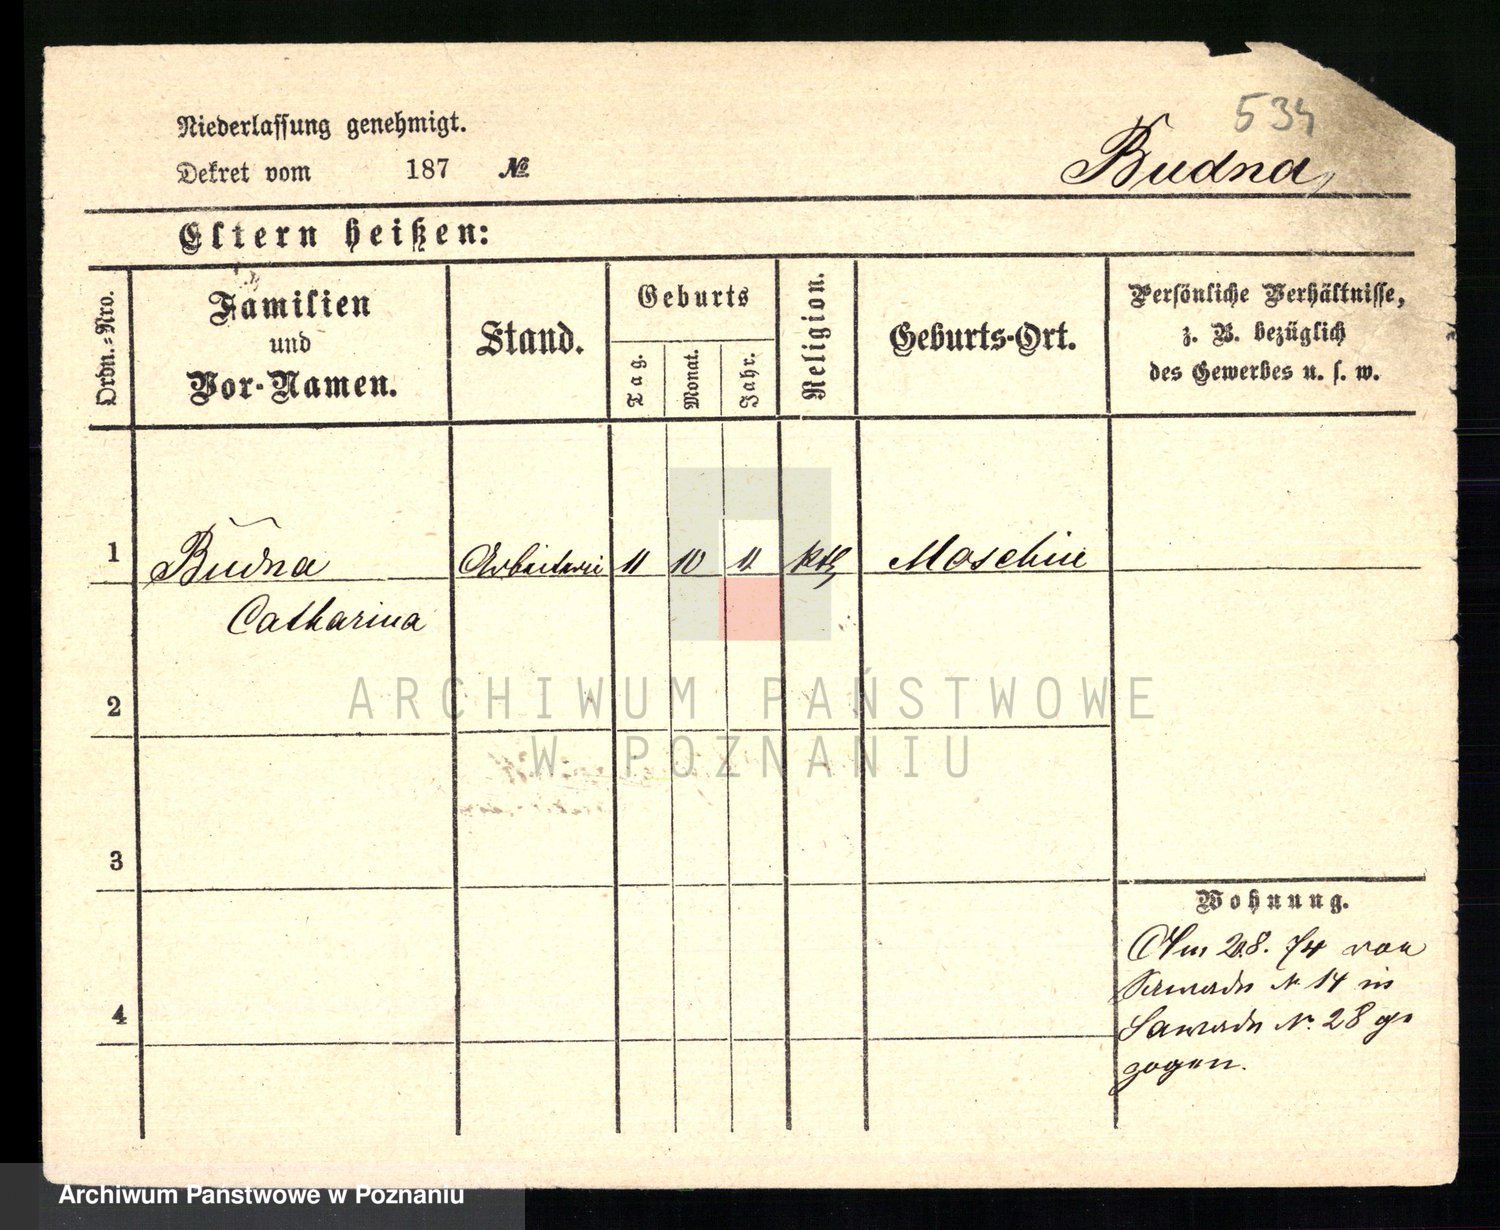 534
Niederlassung genehmigt.
Dekret vom 187 №
Budna,
Eltern heißen:
Ordn.-Nro.
Familien
und
Vor-Namen.
Stand.
Geburts
Tag.
Monat.
Jahr.
Religion.
Geburts-Ort.
Persönliche Verhältnisse,
z. B. bezüglich
des Gewerbes u. s. w.
1 Budna Arbeiterin 11 10 11 kth Moschin
Catharina
2
3
4
Wohnung.
Am 74 von
№ 14 in
Sawade № 28 ge
zogen.
ARCHIWUM PAŃSTWOWE
W POZNANIU
Archiwum Państwowe w Poznaniu